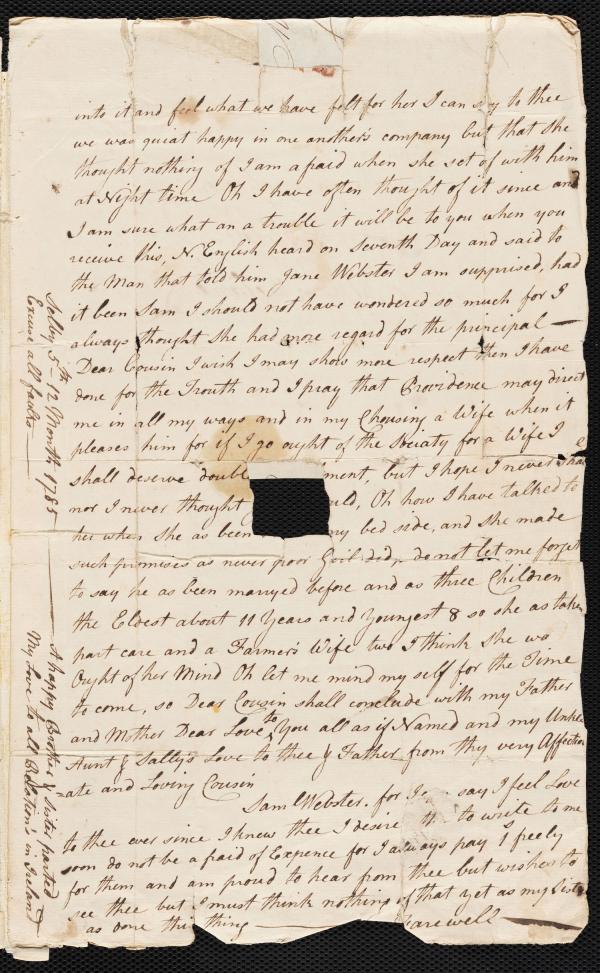 into it and feel what we have felt for her I can say to thee
we was quiat happy in one another's company but that she
thought nothing of I am afraid when she set of with him
at Night time Oh I have often thought of it since and
I am sure what an a trouble it will be to you when you
receive this, N. English heard on Seventh Day and said to
the Man that told him Jane Webster I am supprised, had
it been Sam I should not have wondered so much for I
always thought she had more regard for the principal —
Dear Cousin I wish I may show more respect then I have
done for the Trouth and I pray that Providence may direct
me in all my ways and in my Chousing a Wife when it
pleases him for if I go ought of the Society for a Wife I
shall deserve but I hope I never
nor I never thought Oh how I have talked to
her when she as been my bed side, and she made
such promises as never poor Goil did, do not let me forget
to say he as been marryed before and as three Children
the Eldest about 11 Years and Youngest 8 so she as taken
part care and a Farmer's Wife two I think she wo
Ought of her Mind Oh let me mind my self for the Time
to come, so Dear Cousin shall conclude with my Father
and Mother Dear Love to You all as if Named and my Unkle
Aunt & Sally's Love to thee & Father from thy very Affection
=ate and Loving Cousin
Saml Webster. for I say I feel Love
to thee ever since I knew thee I desire to write to me
soon do not be afraid of Expence for I always pay 1s freely
for them and am proud to hear from thee but wishes to
see thee but I must think nothing of that yet as my Sister
as done this thing — Farewell —
Selby 5th 12 Month 1785 — A happy Brother & Sister parted
Excuse all faults — My Love to all Relation's in Ireland